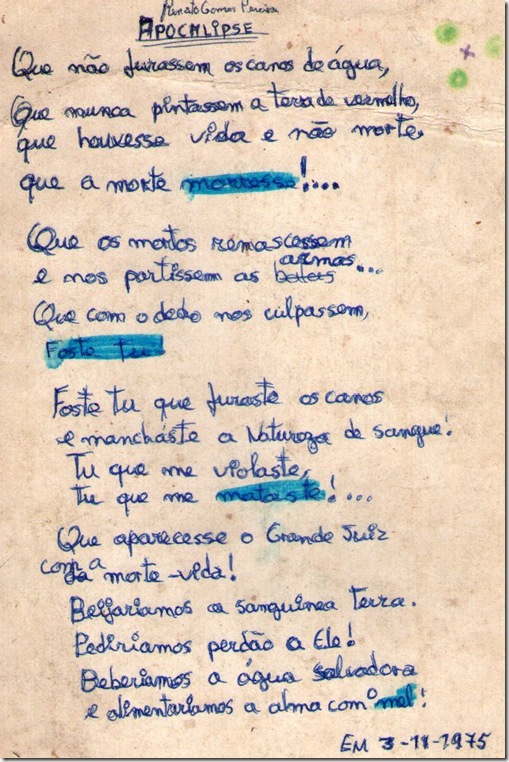 Renato Gomes Pereira
APOCALIPSE
Que não furassem os canos de água,
Que nunca pintassem a terra de vermelho,
que houvesse vida e não morte,
que a morte morresse!....
Que os mortos renascessem
armas...
e nos partissem as
Que com o dedo nos culpassem,
Foste tu
Foste tu que furaste os canos
e manchaste a Natureza de sangue!
Tu que me violaste,
tu que me mataste!...
Que aparecesse o Grande Juiz
com a
morte-vida!
Beijariamos a sanguinea terra.
Pediriamos perdão a Ele!
Beberiamos a água salvadora
e alimentariamos a alma com o mel!
EM 3-11-1975